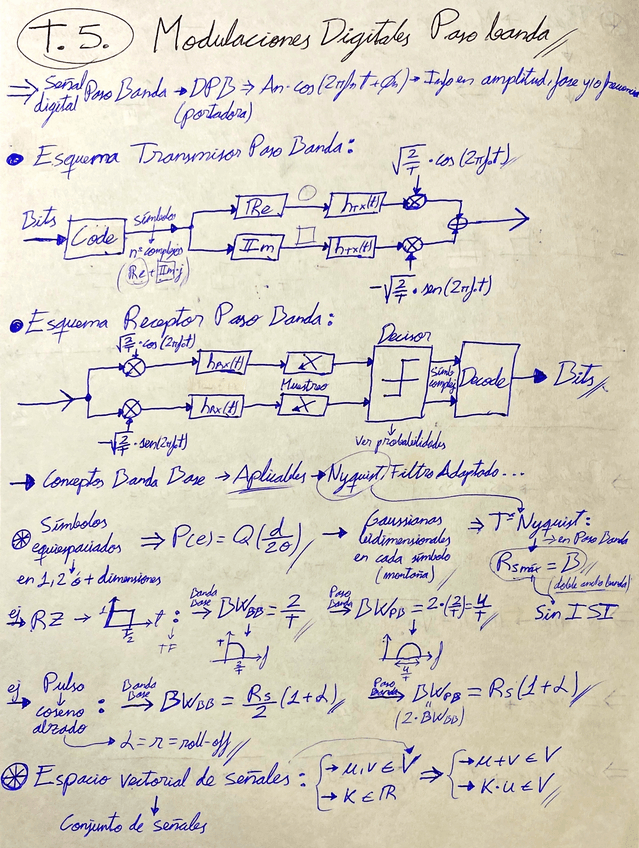 T. 5. Modulaciones Digitales Paso banda
⇒ Señal digital Paso Banda → DPB ⇒ An·cos(2πfnt+φn) → Info en amplitud, fase y/o frecuencia
(portadora)
• Esquema Transmisor Paso Banda:
√(2/T)·cos(2πf₀t)
Bits
Code
Símbolos
nº complejos
(Re+Im·j)
Re
hTx(t)
Im
hTx(t)
-√(2/T)·sen(2πf₀t)
• Esquema Receptor Paso Banda:
√(2/T)·cos(2πf₀t)
hRx(t)
Muestreo
hRx(t)
-√(2/T)·sen(2πf₀t)
Decisor
ver probabilidades
Símb
complej
Decode
Bits
→ Conceptos Banda Base → Aplicables → Nyquist, Filtro Adaptado...
⊛ Símbolos equiespaciados
en 1, 2 ó + dimensiones
⇒ P(e) = Q(d/2σ) →
Gaussianas
bidimensionales
en cada símbolo
(montaña)
⇒ Tª Nyquist:
→ en Paso Banda
Rsmáx = B
(doble ancho banda)
Sin ISI
ej → RZ → 1 T/2 t :
TF
Banda Base → BW_BB = 2/T
T 2/T f
Paso Banda → BW_PB = 2·(2/T) = 4/T
4/T f
ej → Pulso
coseno
alzado
:
Banda Base → BW_BB = Rs/2 (1+α)
Paso Banda → BW_PB = Rs(1+α)
(2·BW_BB)
→ α = r = roll-off
⊛ Espacio vectorial de señales: { → u,v ∈ V → K ∈ R ⇒ { → u+v ∈ V → K·u ∈ V
Conjunto de señales